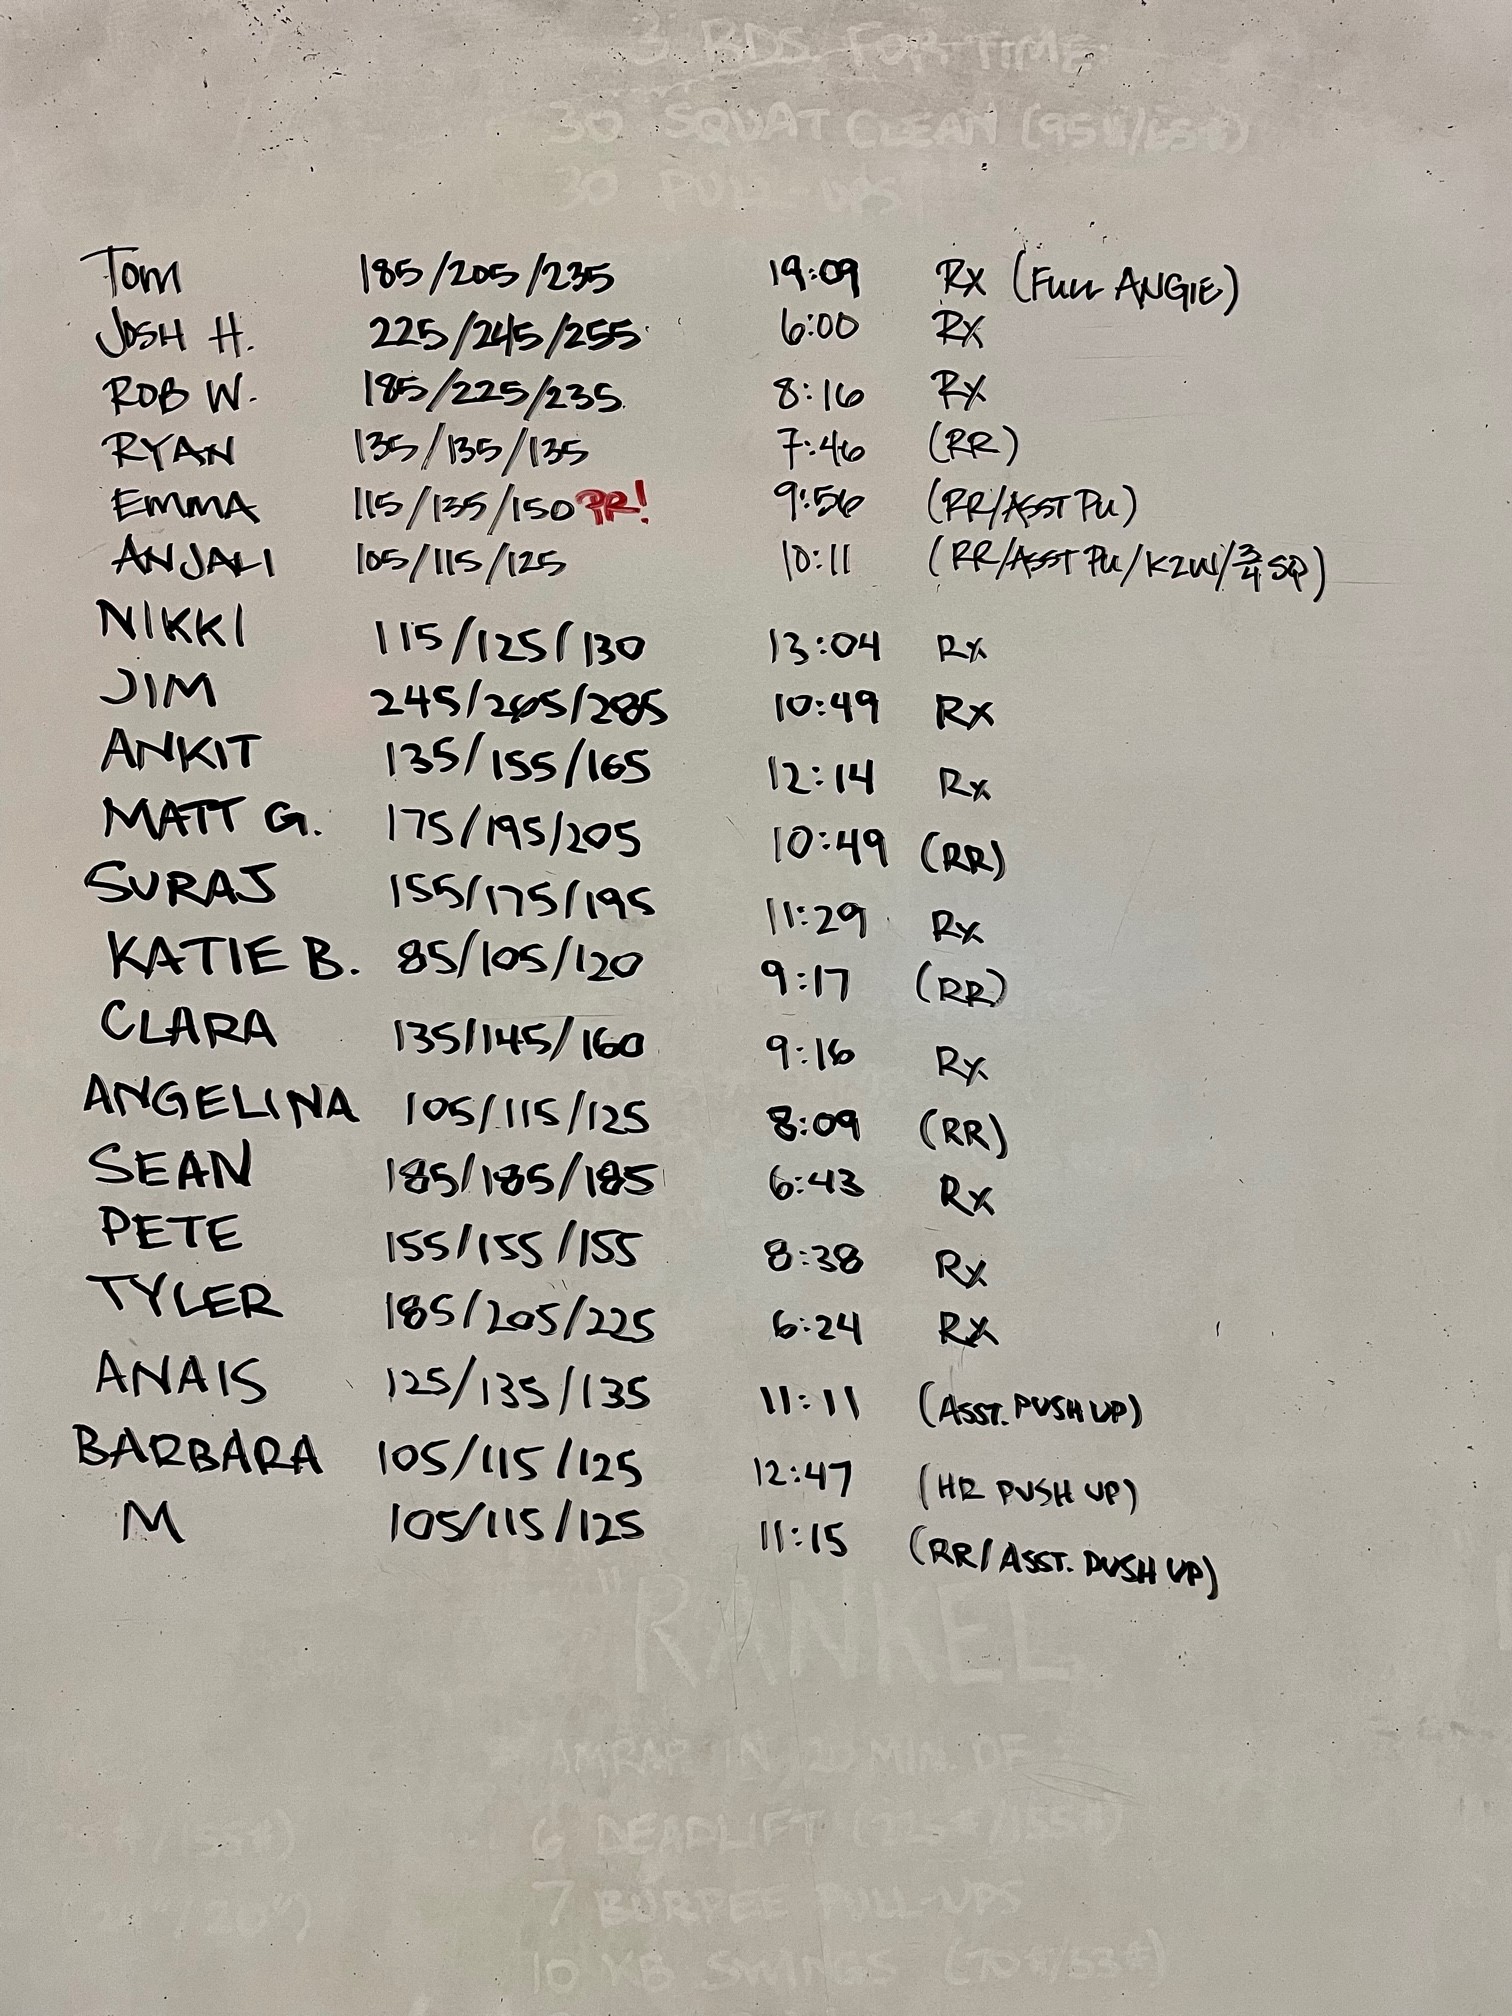 3 RDS FOR TIME:
30 SQUAT CLEAN (95#/65#)
30 PULL-UPS
TOM 185/205/235 19:09 Rx (FULL ANGIE)
JOSH H. 225/245/255 6:00 Rx
ROB W. 185/225/235 8:16 Rx
RYAN 135/135/135 7:46 (RR)
EMMA 115/135/150 PR! 9:56 (RR/ASST PU)
ANJALI 105/115/125 10:11 (RR/ASST PU/K2W/3/4 SQ)
NIKKI 115/125/130 13:04 Rx
JIM 245/265/285 10:49 Rx
ANKIT 135/155/165 12:14 Rx
MATT G. 175/195/205 10:49 (RR)
SURAJ 155/175/195 11:29 Rx
KATIE B. 85/105/120 9:17 (RR)
CLARA 135/145/160 9:16 Rx
ANGELINA 105/115/125 8:09 (RR)
SEAN 185/185/185 6:43 Rx
PETE 155/155/155 8:38 Rx
TYLER 185/205/225 6:24 Rx
ANAIS 125/135/135 11:11 (ASST. PUSH UP)
BARBARA 105/115/125 12:47 (HR PUSH UP)
M 105/115/125 11:15 (RR/ASST. PUSH UP)
"RANKEL
AMRAP IN 20 MIN. OF
6 DEADLIFT (225#/155#)
7 BURPEE PULL-UPS
10 KB SWINGS (70#/53#)